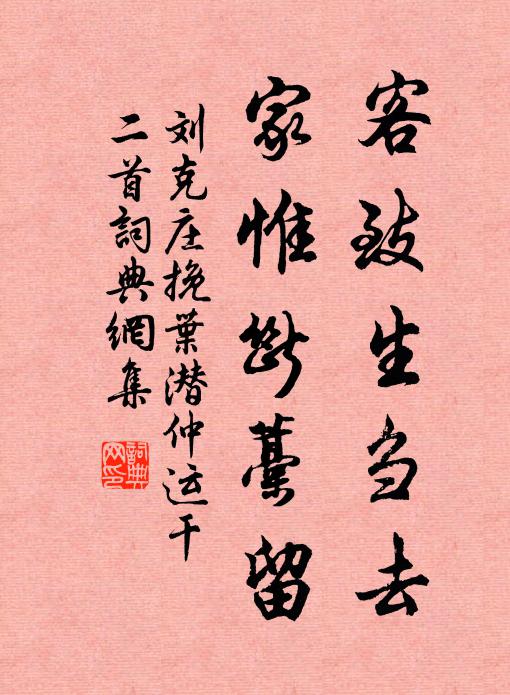 客致生刍去
家惟断藁留
刘克庄挽葉潜仲运干
二首詞典網集
詞典
网印